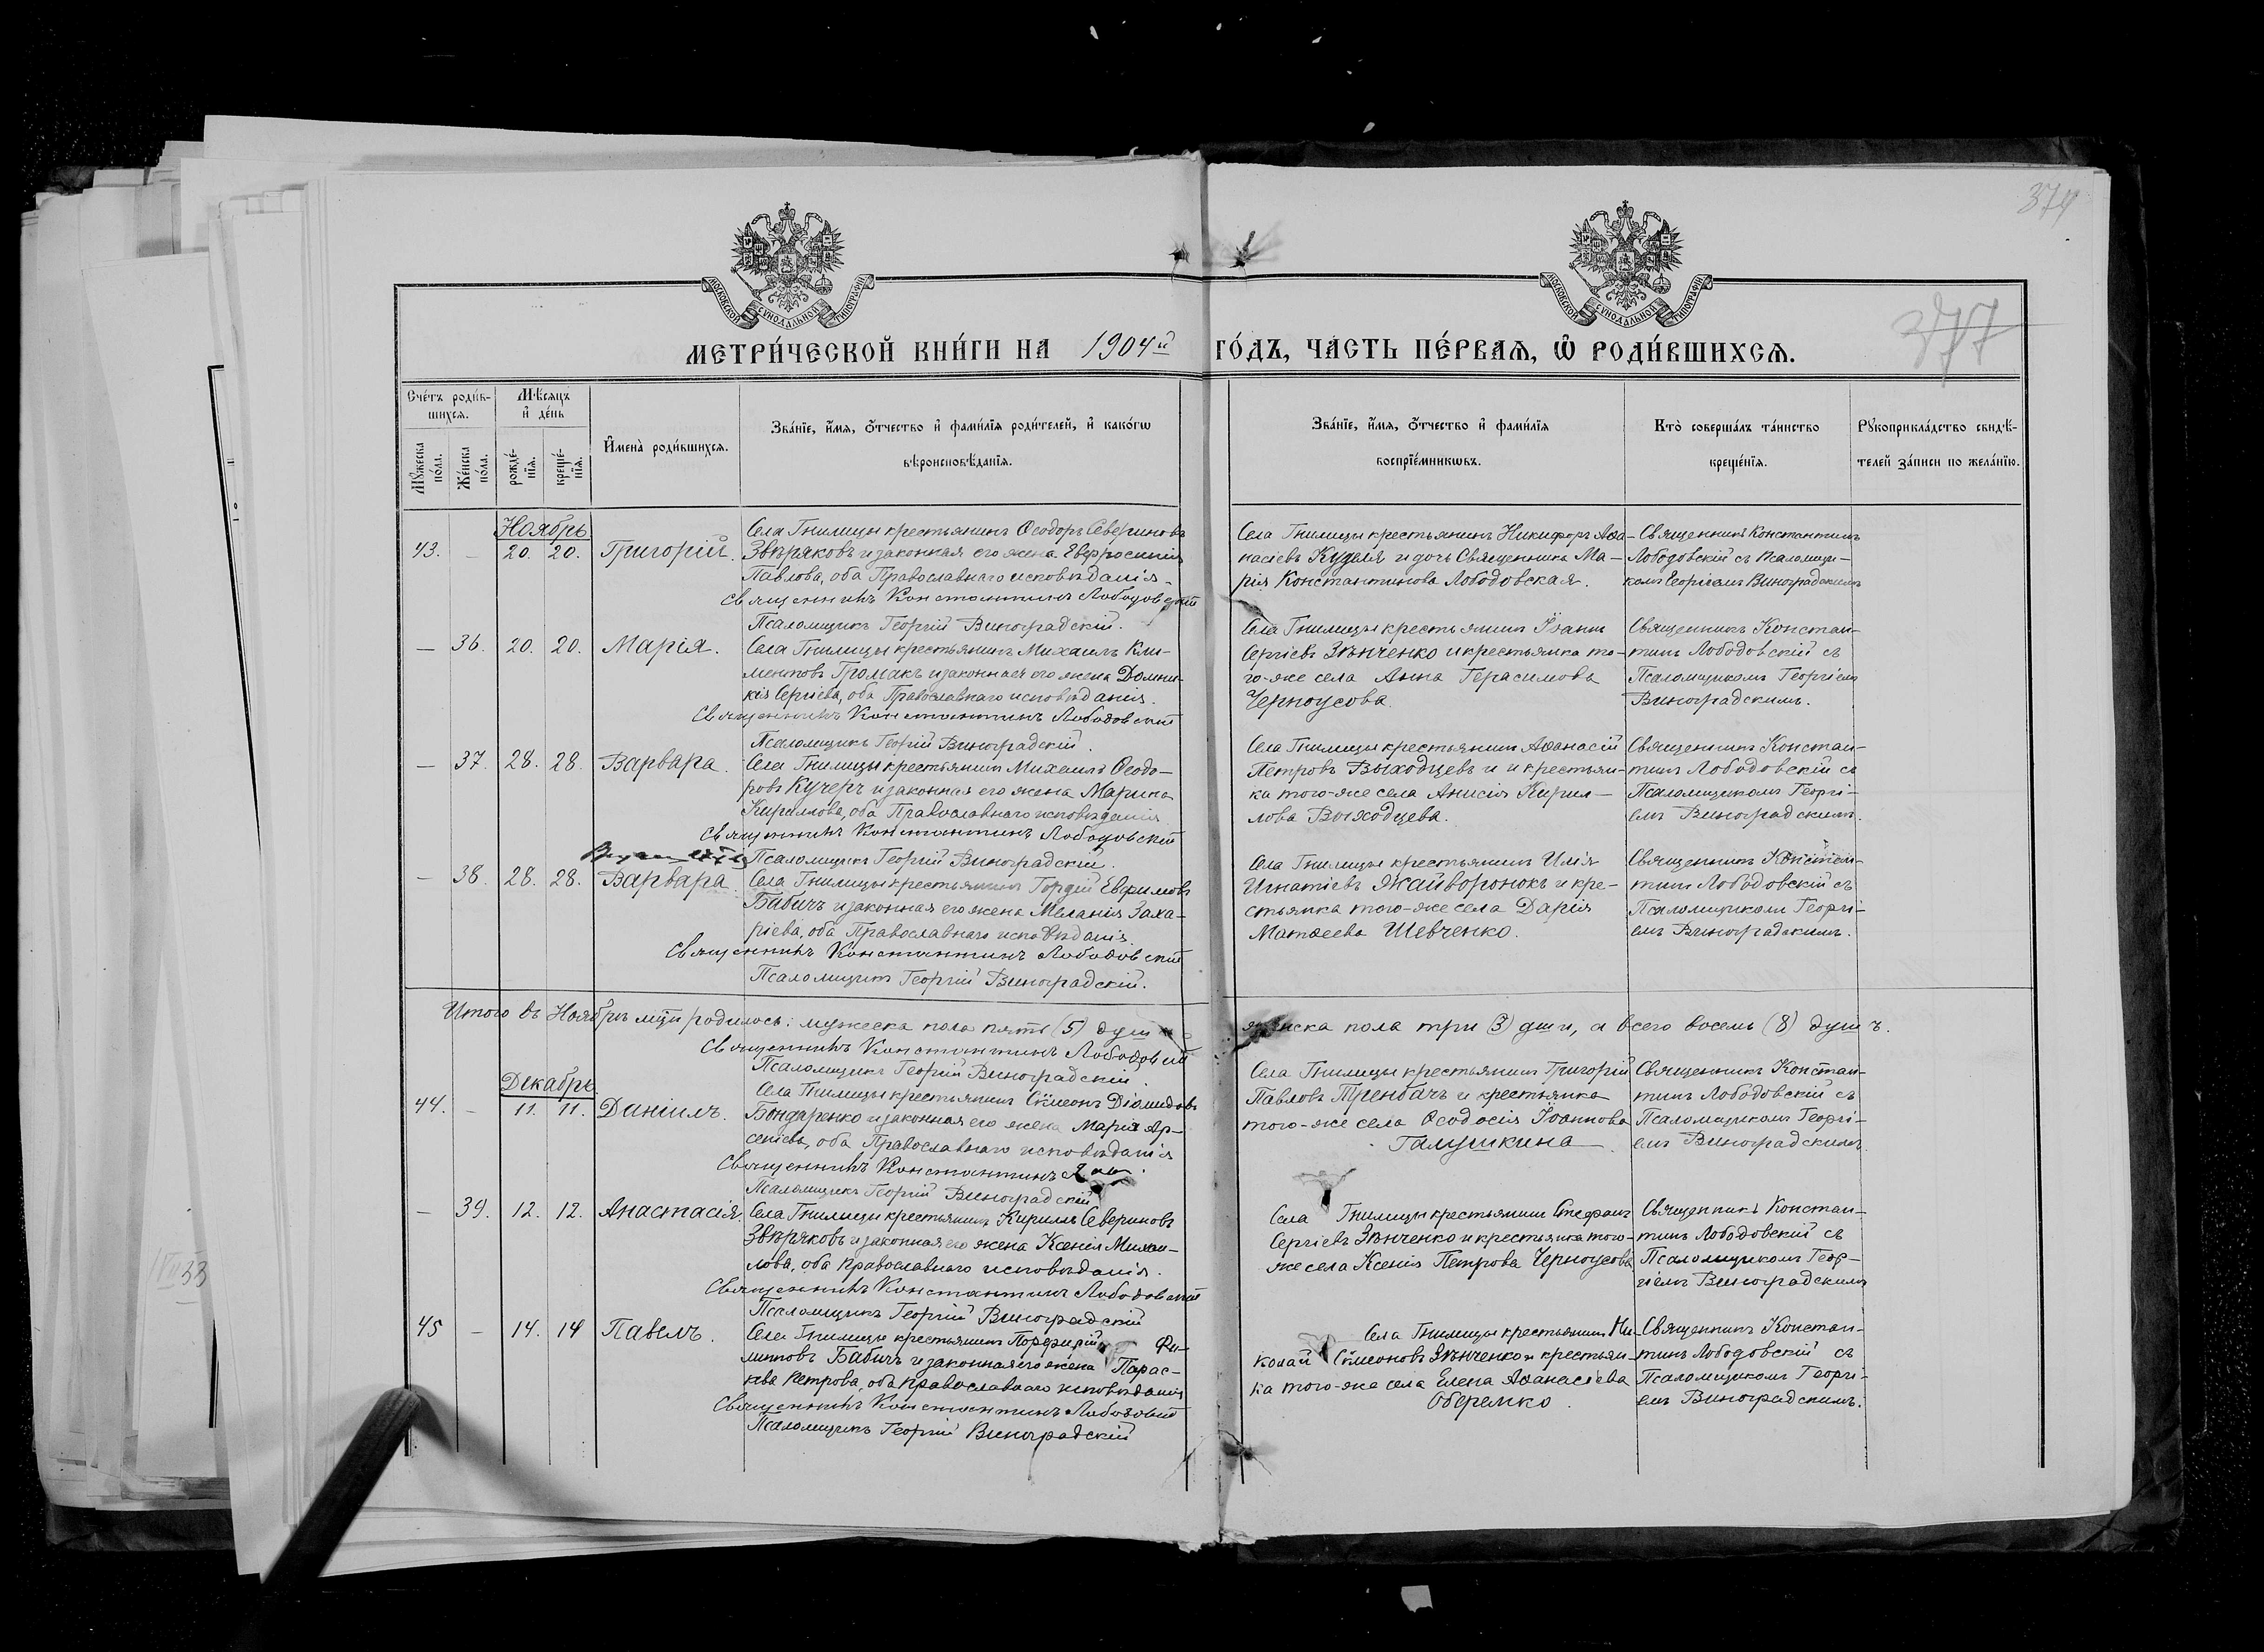 374
377
МОСКОВСКОЙ СУНОДАЛЬНОЙ ТИПОГРАФІИ
МОСКОВСКОЙ СУНОДАЛЬНОЙ ТИПОГРАФІИ
МЕТРИ́ЧЕСКОЙ КНИ́ГИ НА 1904й ГО́ДЪ, ЧА́СТЬ ПЕ́РВАѦ, Ѡ҆ РОДИ́ВШИХСѦ.
Сче́тъ роди́в-
шихсѧ.
Мѣ́сѧцъ
и҆ де́нь
Мꙋ́жеска
по́ла.
Же́нска
по́ла.
рожде́-
нїѧ.
креще́-
нїѧ.
И҆мена̀ роди́вшихсѧ.
Зва́нїе, и҆́мѧ, ѻ҆́тчество и҆ фами́лїѧ роди́телей, и҆ како́гѡ
вѣроисповѣ́данїѧ.
Зва́нїе, и҆́мѧ, ѻ҆́тчество и҆ фами́лїѧ
воспрїе́мникѡвъ.
Кто̀ соверша́лъ та́инство
креще́нїѧ.
Рꙋкоприкла́дство свидѣ́-
телей за́писи по жела́нїю.
Ноябрь
43. — 20. 20. Григорій.
Села Гнилицы крестьянинъ Ѳеодоръ Севериновъ
Звѣряковъ и законная его жена Евфросинія
Павлова, оба Православнаго исповѣданія.
Священникъ Константинъ Лободовскій
Псаломщикъ Георгій Виноградскій.
Села Гнилицы крестьянинъ Никифоръ Аѳа-
насіевъ Куделя и дочь Священника Ма-
рія Константинова Лободовская.
Священникъ Константинъ
Лободовскій съ Псаломщи-
комъ Георгіемъ Виноградскимъ
— 36. 20. 20. Марія.
Села Гнилицы крестьянинъ Михаилъ Кли-
ментовъ Громакъ и законная его жена Домни-
кія Сергіева, оба Православнаго исповѣданія.
Священникъ Константинъ Лободовскій
Псаломщикъ Георгій Виноградскій.
Села Гнилицы крестьянинъ Іоаннъ
Сергіевъ Зѣнченко и крестьянка то-
го-же села Анна Герасимова
Черноусова.
Священникъ Констан-
тинъ Лободовскій съ
Псаломщикомъ Георгіемъ
Виноградскимъ.
— 37. 28. 28. Варвара.
Села Гнилицы крестьянинъ Михаилъ Ѳеодо-
ровъ Кучеръ и законная его жена Марина
Кириллова, оба Православнаго исповѣданія
Священникъ Константинъ Лободовскій
Псаломщикъ Георгій Виноградскій.
Села Гнилицы крестьянинъ Аѳанасій
Петровъ Выходцевъ и и крестьян-
ка того-же села Анисія Кирил-
лова Выходцева.
Священникъ Констан-
тинъ Лободовскій съ
Псаломщикомъ Георгі-
емъ Виноградскимъ.
— 38. 28. 28. Варвара.
Села Гнилицы крестьянинъ Гордій Евфимовъ
Бабичъ и законная его жена Меланія Заха-
ріева, оба Православнаго исповѣданія.
Священникъ Константинъ Лободовскій
Псаломщикъ Георгій Виноградскій.
Села Гнилицы крестьянинъ Илія
Игнатіевъ Жайворонокъ и кре-
стьянка того-же села Дарія
Матѳеева Шевченко.
Священникъ Констан-
тинъ Лободовскій съ
Псаломщикомъ Георгі-
емъ Виноградскимъ.
Итого въ Ноябрѣ м-цѣ родилось: мужеска пола пять (5) душ женска пола три (3) души, а всего восемь (8) душъ.
Священникъ Константинъ Лободовскій
Псаломщикъ Георгій Виноградскій.
Декабрь
44. — 11. 11. Даніилъ.
Села Гнилицы крестьянинъ Сѵмеонъ Діомидовъ
Бондаренко и законная его жена Марія Ар-
сеніева, оба Православнаго исповѣданія
Священникъ Константинъ
Псаломщикъ Георгій Виноградскій
Села Гнилицы крестьянинъ Григорій
Павловъ Тренбачъ и крестьянка
того-же села Ѳеодосія Іоаннова
Галушкина.
Священникъ Констан-
тинъ Лободовскій съ
Псаломщикомъ Георгі-
емъ Виноградскимъ.
— 39. 12. 12. Анастасія.
Села Гнилицы крестьянинъ Кириллъ Севериновъ
Звѣряковъ и законная его жена Ксенія Михаи-
лова, оба православнаго исповѣданія.
Священникъ Константинъ Лободовскій
Псаломщикъ Георгій Виноградскій
Села Гнилицы крестьянинъ Стефанъ
Сергіевъ Зѣнченко и крестьянка того-
же села Ксенія Петрова Черноусова
Священникъ Констан-
тинъ Лободовскій съ
Псаломщикомъ Геор-
гіемъ Виноградскимъ
45 — 14. 14 Павелъ.
Села Гнилицы крестьянинъ Порфирій Фи-
липповъ Бабичъ и законная его жена Парас-
кева Петрова, оба православнаго исповѣданія
Священникъ Константинъ Лободовскій
Псаломщикъ Георгій Виноградскій
Села Гнилицы крестьянинъ Ни-
колай Сѵмеоновъ Зѣнченко и крестьян-
ка того-же села Елена Аѳанасіева
Оберемко.
Священникъ Констан-
тинъ Лободовскій съ
Псаломщикомъ Георгі-
емъ Виноградскимъ.